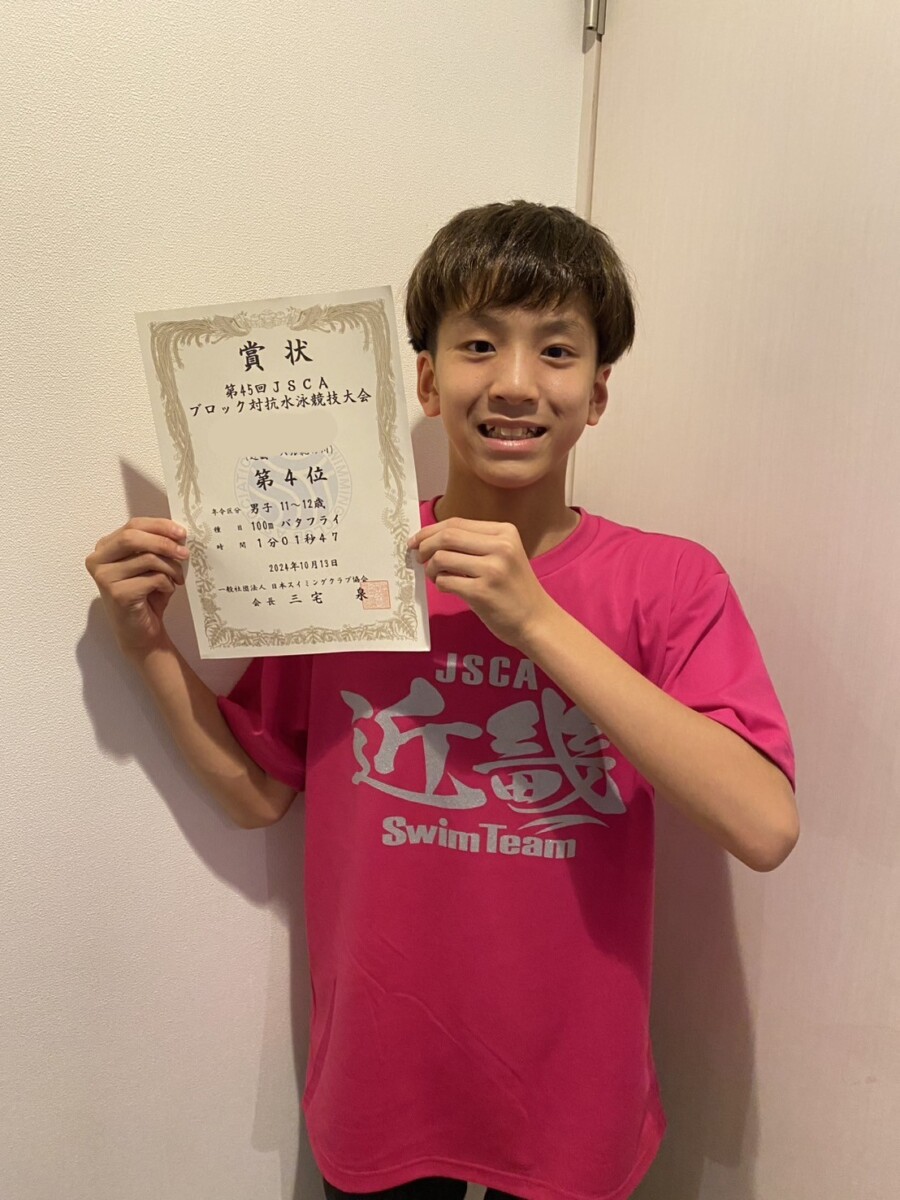 賞状
第45回JSCA
ブロック対抗水泳競技大会
第4位
年令区分 男子 11～12歳
種目 100m バタフライ
時間 1分01秒47
2024年10月13日
一般社団法人 日本スイミングクラブ協会
会長 三宅 泉
JSCA
近畿
Swim Team